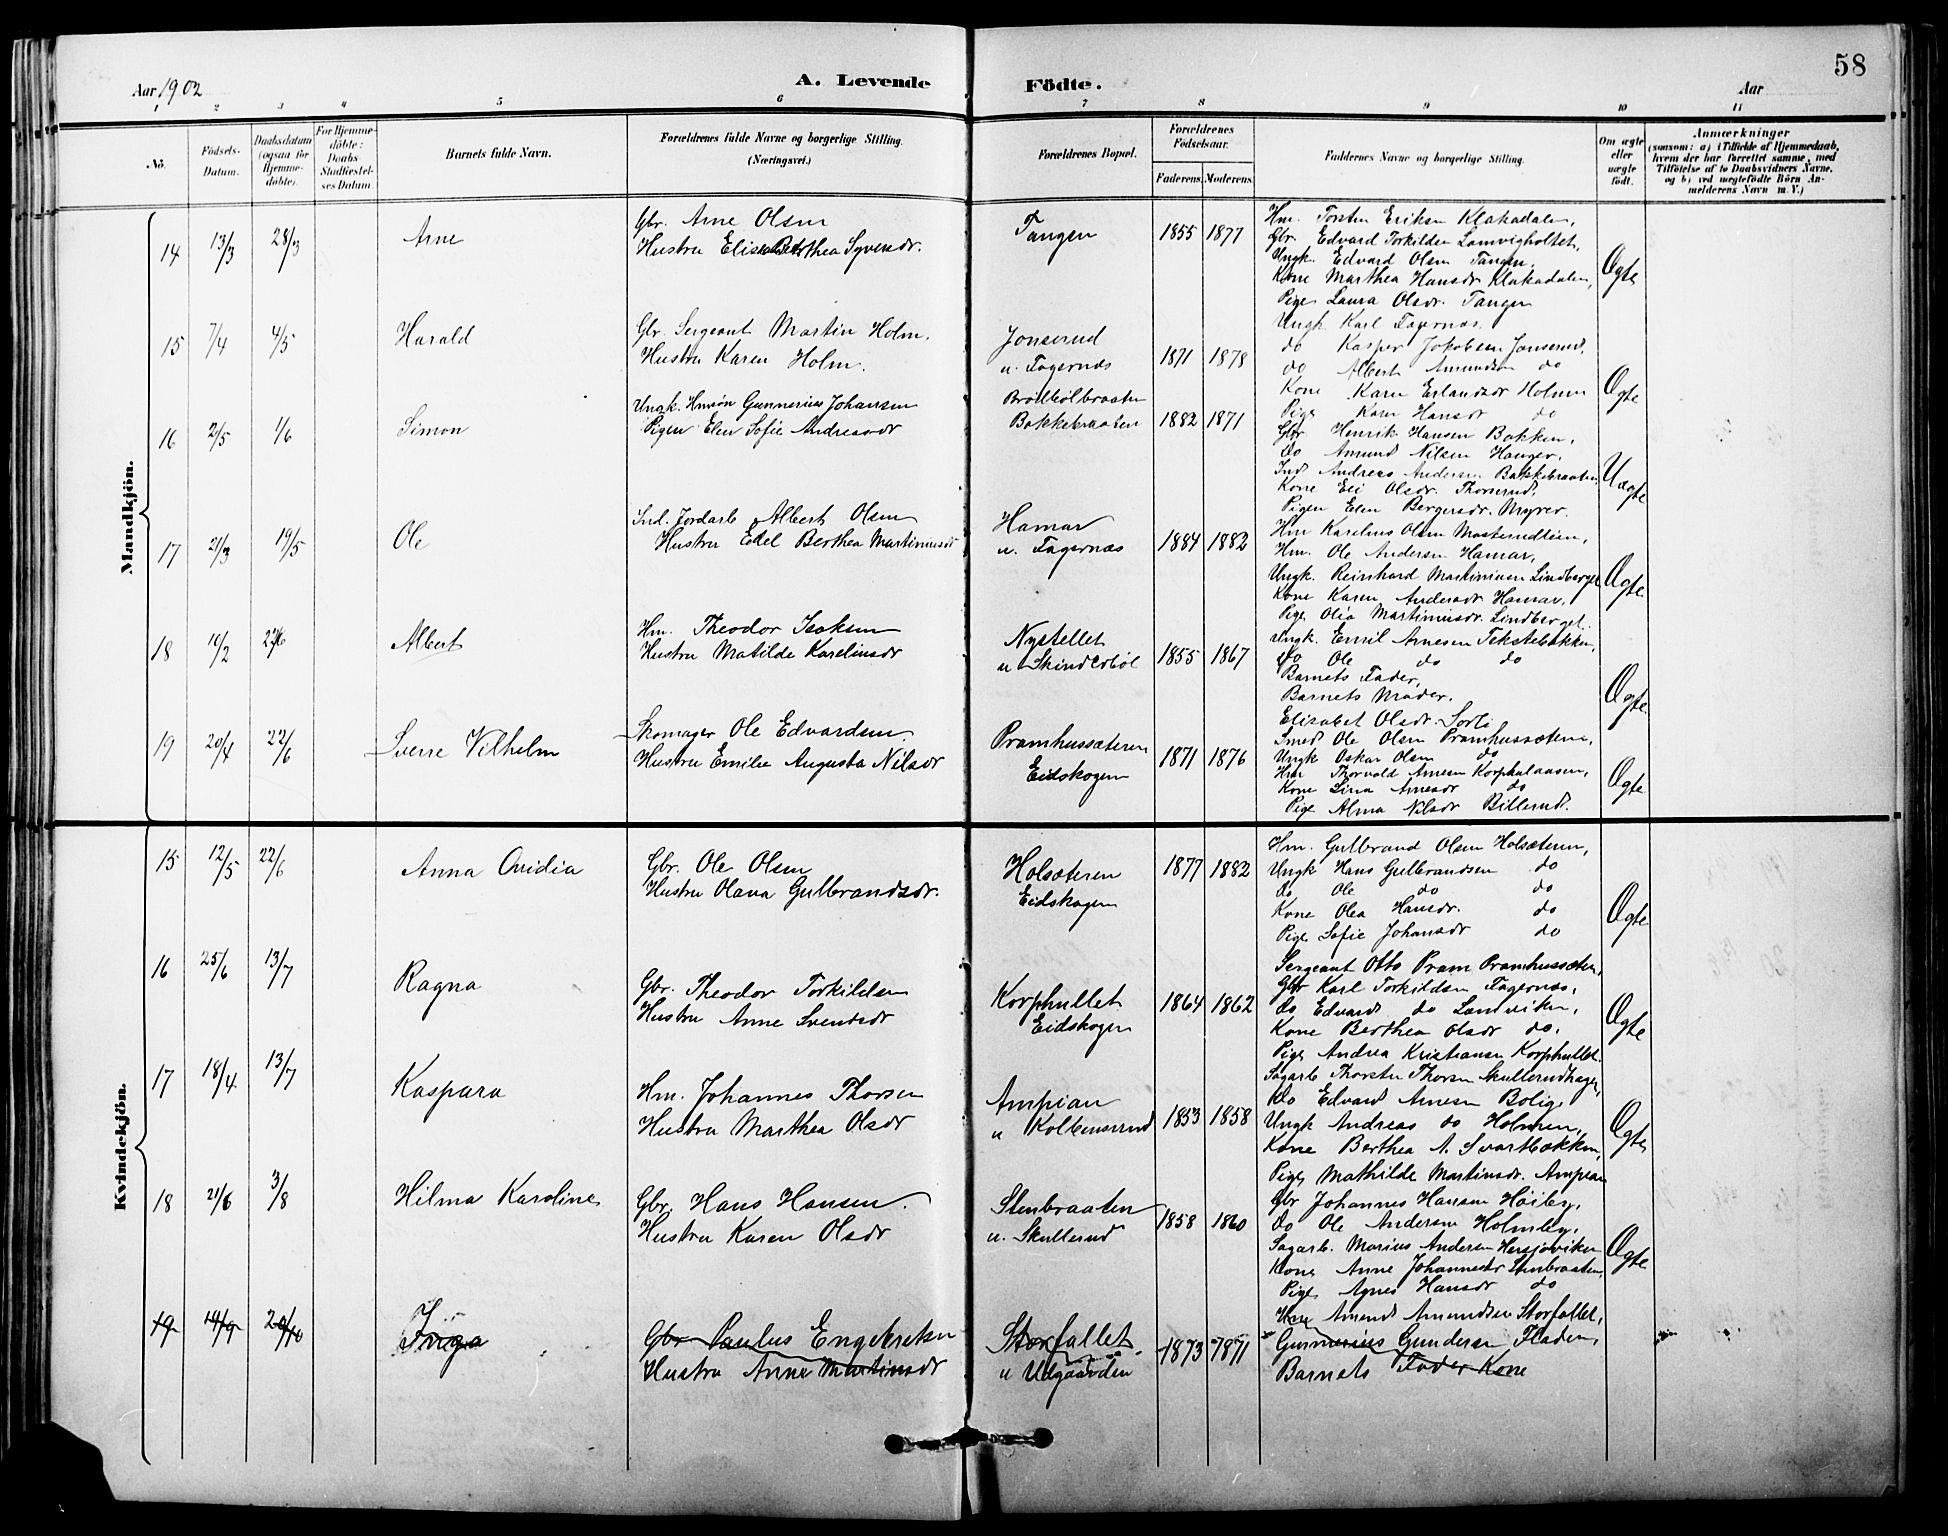 Aar 1902
A. Levende Födte.
Aar
58
1 2 3 4 5 6 7 8 9 10 11
No.
Födsels-Datum.
Daabsdatum (ogsaa for Hjemme-döbte).
For Hjemme-döbte: Daabs-Stadfæstel-ses Datum.
Barnets fulde Navn.
Forældrenes fulde Navne og borgerlige Stilling. (Næringsvei.)
Forældrenes Bopæl.
Forældrenes Födselsaar.
Faderens. Moderens.
Faddernes Navne og borgerlige Stilling.
Om ægte eller uægte födt.
Anmærkninger
(saasom: a) i Tilfælde af Hjemmedaab, hvem der har forrettet samme, med Tilföielse af to Daabsvidners Navne, og b) ved uægtefödte Börn An-melderens Navn m. V.)
Mandkjön.
14 13/3 28/3 Arne
Gbr. Arne Olsen
Hustru Elise Berthea Syversdr.
Tangen
1855 1877
Hm. Torsten Eriksen Klakadalen,
Gbr. Edvard Torkildsen Lomvigholtet,
Ungk. Edvard Olsen Tangen,
Kone Marthea Hansdr Klakadalen,
Pige Laura Olsdr. Tangen
Ægte
15 7/4 4/5 Harald
Gbr. Sergeant Martin Holm.
Hustru Karen Holm.
Jonserud
u. Fagernæs
1871 1878
Ungk Karl Fagernæs.
do Kasper Jakobsen Jonserud,
do Albert Amundsen do
Kone Karen Erlandsdr Holmen
Pige Karen Hansdr do
Ægte
16 2/5 1/6 Simon
Ungk. Hmsön Gunnerius Johansen
Pigen Elen Sofie Andreasdr
Brödbölbraaten
Bakkebraaten
1882 1871
Gbr Henrik Hansen Bakken,
do Amund Nilsen Hanger,
Ind. Andreas Andersen Bakkebraaten
Kone Eli Olsdr. Thorserud,
Pigen Elen Bergersdr. Myrer.
Uægte
17 21/3 19/5 Ole
Ind. Jordarb Albert Olsen
Hustru Edel Berthea Martinusdr
Hamar
u. Fagernæs
1884 1882
Hm Karelius Olsen Masterudlien,
Hm. Ole Andersen Hamar,
Ungk. Reinhard Martiniusen Lindberget
Kone Karen Andersdr Hamar,
Pige Olia Martiniusdr. Lindberget.
Ægte.
18 10/2 Albert
Hm. Theodor Isaksen
Hustru Matilde Kareliusdr
Nystellet
u Skinderböl
1855 1867
Ungk. Emil Arnesen Tekstebakken,
do Ole do do
Barnets Fader,
Barnets Moder.
Elisabet Olsdr. Sorli
Ægte.
19 20/4 22/6 Sverre Vilhelm
Skomager Ole Edvardsen.
Hustru Emilie Augusta Nilsdr
Pramhussæteren
Eidskogen
1871 1876
Smed Ole Olsen Pramhussæteren,
Ungk Oskar Olsen do
Hm Thorvald Arnesen Korphulaasen,
Kone Lina Arnesdr do
Pige Alma Nilsdr Billerud.
Ægte
Kvindekjön.
15 12/5 22/6 Anna Ovidia
Gbr. Ole Olsen
Hustru Olava Gulbrandsdr.
Holsæteren
Eidskogen
1877 1882
Hm. Gulbrand Olsen Holsæteren,
Ungk Hans Gulbrandsen do
do Ole do do
Kone Olea Hansdr. do
Pige Sofie Johansdr do
Ægte
16 25/6 13/7 Ragna
Gbr. Theodor Torkildsen
Hustru Anne Svensdr
Korphullet
Eidskogen
1864 1862
Sergeant Otto Pram Pramhussæteren,
Gbr Karl Torkildsen Fagernæs,
do Edvard do Lomviken,
Kone Berthea Olsdr do.
Pige Andrea Kristiansen Korphullet.
Ægte
17 18/4 13/7 Kaspara
Hm. Johannes Thorsen
Hustru Marthea Olsdr
Ampian
u Kolbenserud
1853 1858
Sagarb Thorsten Thorsen Skullerudhagen,
do Edvard Arnesen Bolig,
Ungk Andreas do Holmen,
Kone Berthea A. Svartbækken,
Pige Mathilde Martinsdr. Ampian
Ægte
18 21/6 3/8 Hilma Karoline
Gbr. Hans Hansen.
Hustru Karen Olsdr
Stenbraaten
u. Skullerud
1858 1860
Gbr Johannes Hansen Höiby,
do Ole Andersen Holmby,
Sagarb. Marius Andersen Hersjöviken
Kone Anne Johannesdr Stenbraaten,
Pige Agnes Hansdr do
Ægte
19 14/9 Inga
Gbr Paulus Engebretsen
Hustru Anne Martinsdr
Storfallet
u Udgaarden
1873 1871
Hm Amund Amundsen Storfallet,
Gunnerius Gundersen Fladen,
Barnets Fader Kone